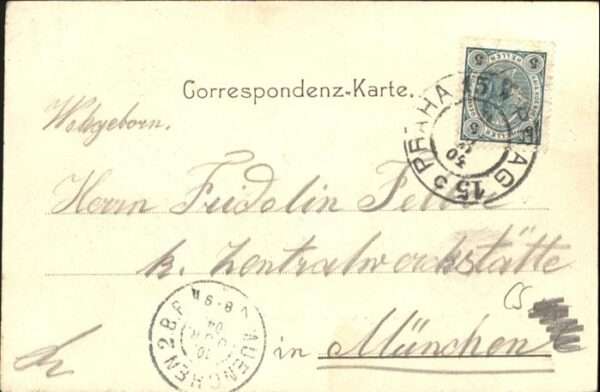 Correspondenz-Karte.
Wohlgeboren.
Herrn Fridolin
k. Zentralwerkstätte
in München
PRAHA PRAG
15
5 5
5 5
HELLER
MUENCHEN 2.B.P.
CS